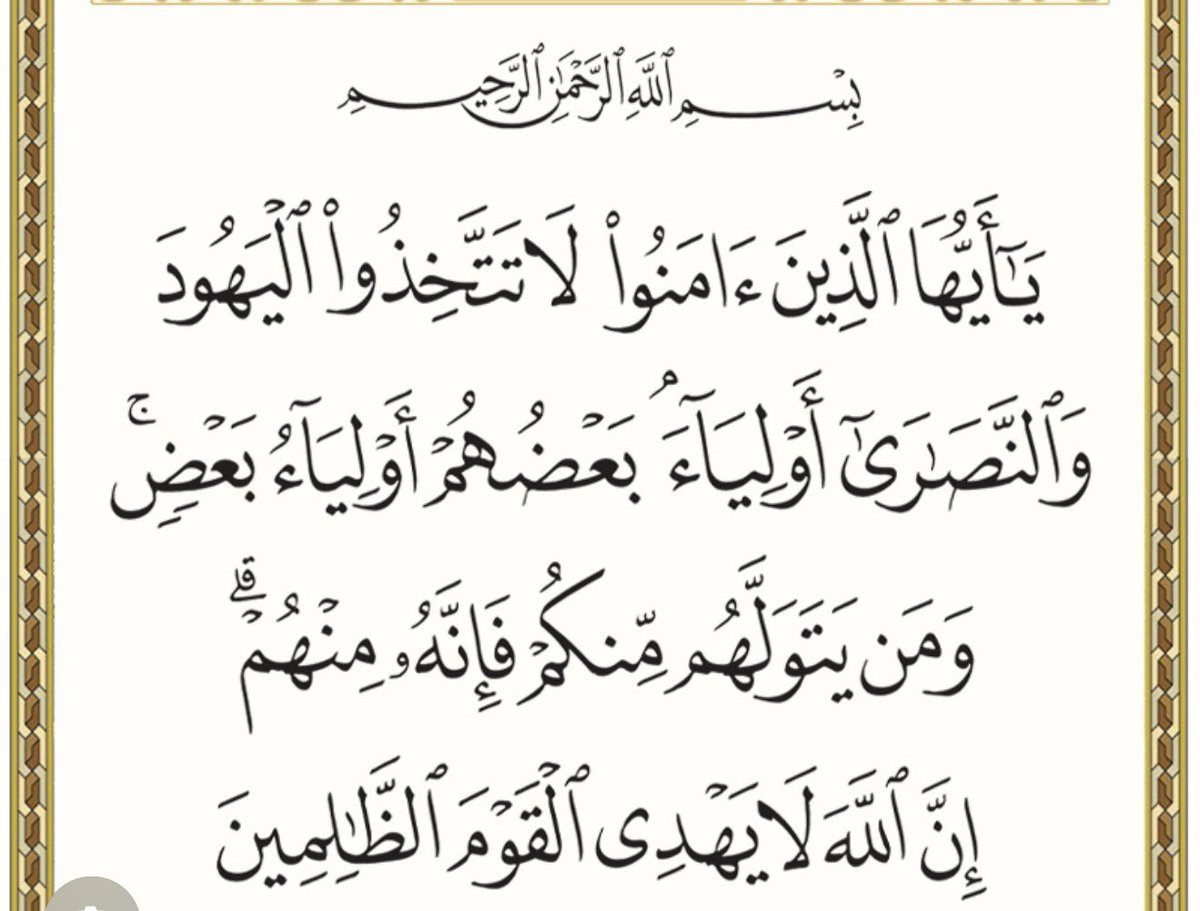 بِسْمِ ٱللَّهِ ٱلرَّحْمَٰنِ ٱلرَّحِيمِ
يَٰٓأَيُّهَا ٱلَّذِينَ ءَامَنُوا۟ لَا تَتَّخِذُوا۟ ٱلْيَهُودَ
وَٱلنَّصَٰرَىٰٓ أَوْلِيَآءَ ۘ بَعْضُهُمْ أَوْلِيَآءُ بَعْضٍ ۚ
وَمَن يَتَوَلَّهُم مِّنكُمْ فَإِنَّهُۥ مِنْهُمْ ۗ
إِنَّ ٱللَّهَ لَا يَهْدِى ٱلْقَوْمَ ٱلظَّٰلِمِينَ